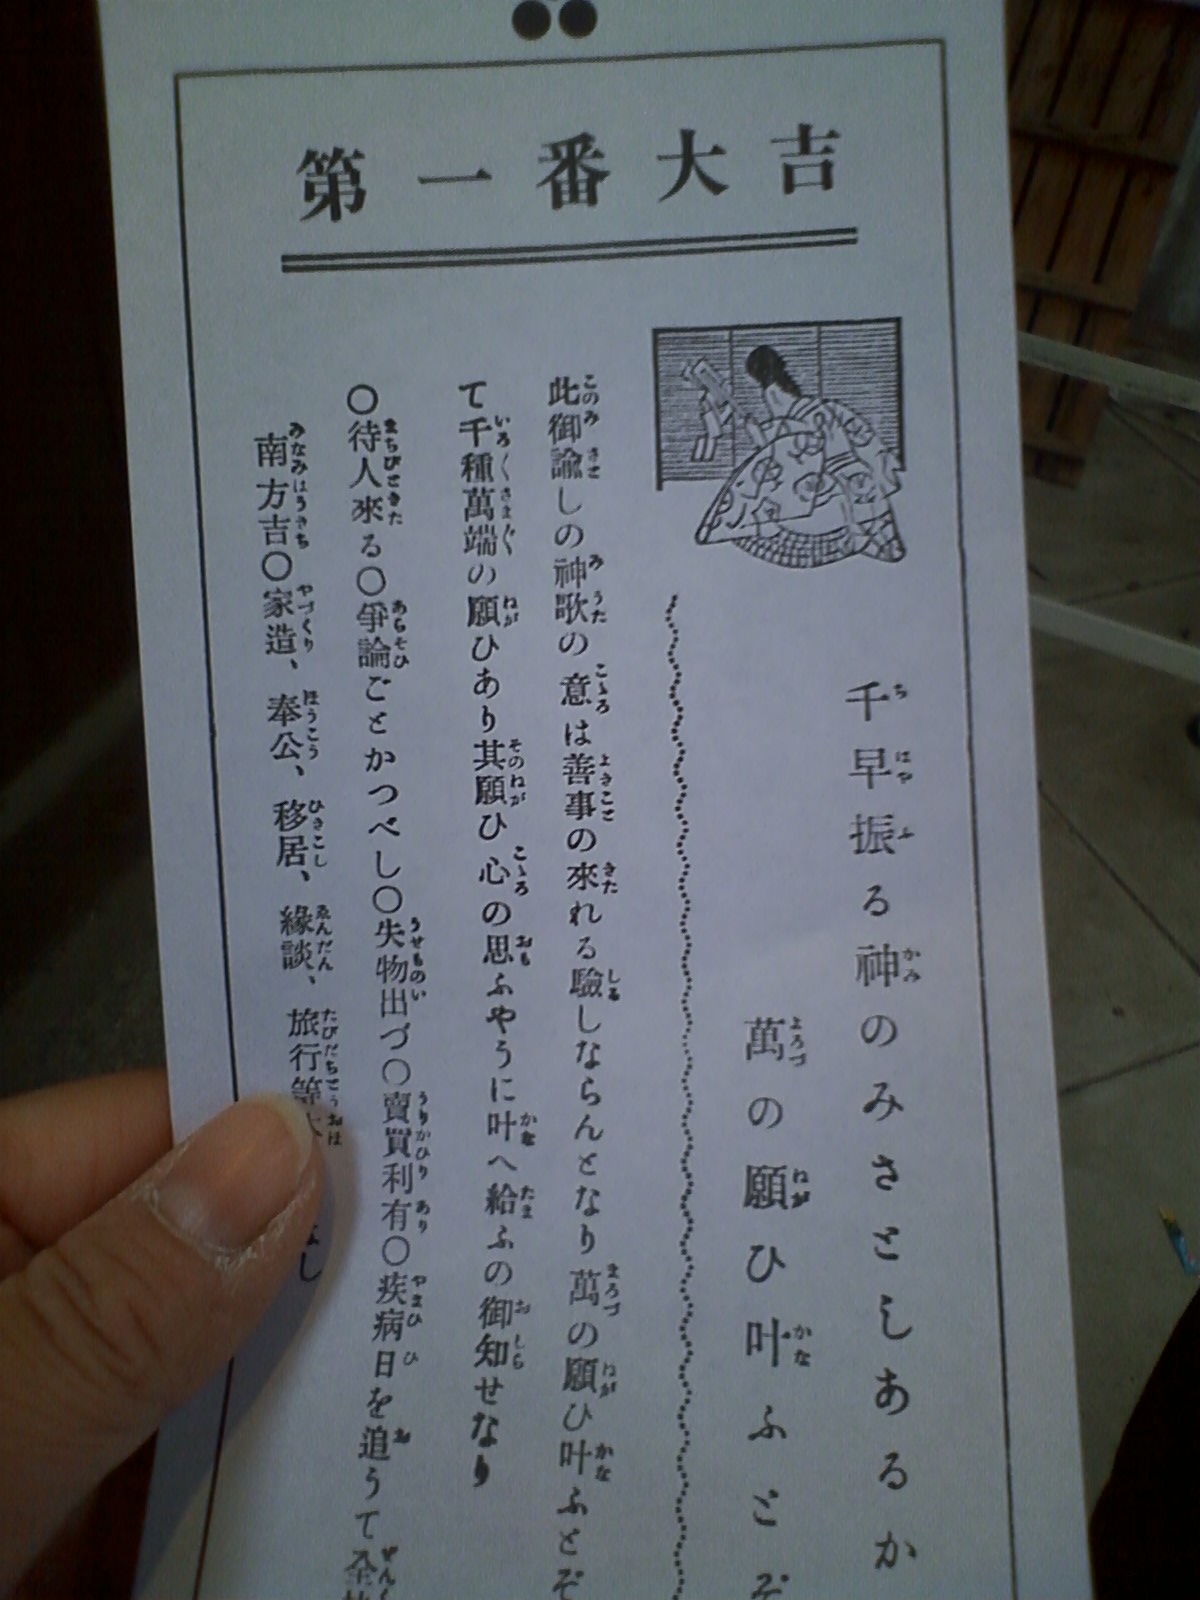 第一番大吉
千早振る神のみさとしあるか
萬の願ひ叶ふとぞ
此御諭しの神歌の意は善事の來れる驗しならんとなり萬の願ひ叶ふとぞ
て千種萬端の願ひあり其願ひ心の思ふやうに叶へ給ふの御知せなり
○待人來る○爭論ごとかつべし○失物出づ○賣買利有○疾病日を追うて全
南方吉○家造、奉公、移居、緣談、旅行等大